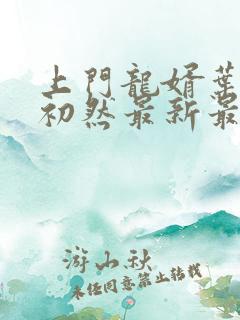 上門龍婿葉
初然最新最
游山秋
未经同意禁止转载